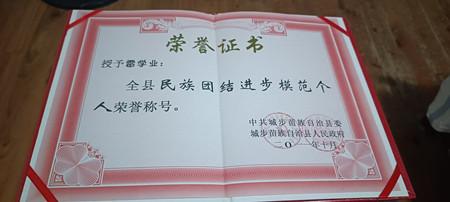 荣誉证书
授予雷学业：
全县民族团结进步模范个
人荣誉称号。
中共城步苗族自治县委
城步苗族自治县人民政府
年十月